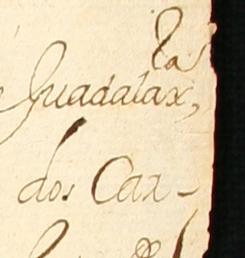 ra
Guadalax,
dos Cax-